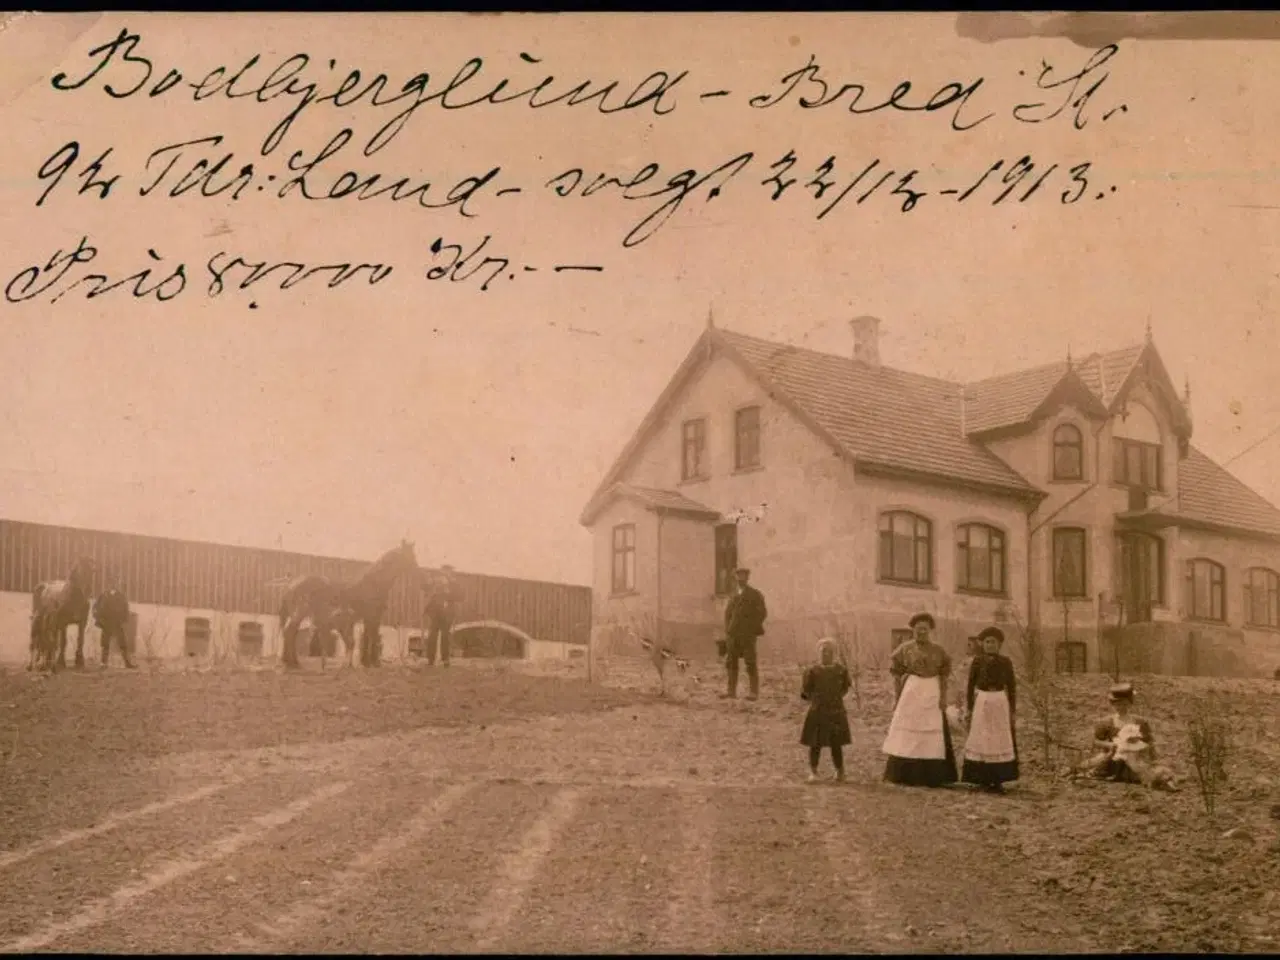 Bodbjerglund - Bred St.
92 Tdr: Land - solgt 22/12-1913.
Pris 80,000 Kr. - —